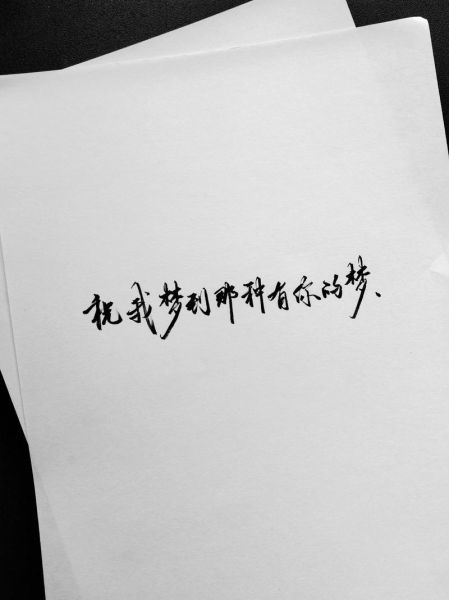 祝我梦到那种有你的梦、